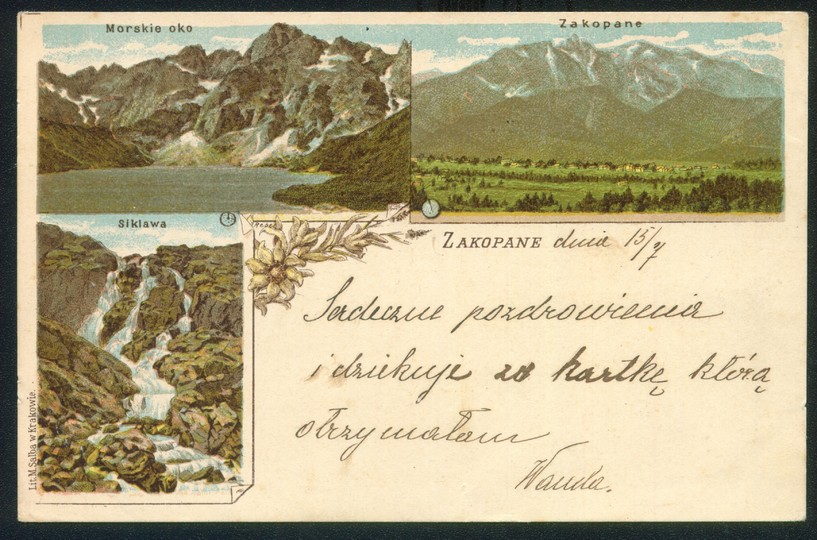 Morskie oko
Zakopane
Siklawa
ZAKOPANE dnia 15/7
Serdeczne pozdrowienia
i dziekuje za kartkę którą
otrzymałam
Wanda.
Lit. M. Salba w Krakowie.